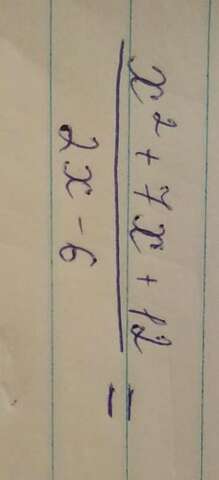 x² + 7x + 12 =
2x - 6